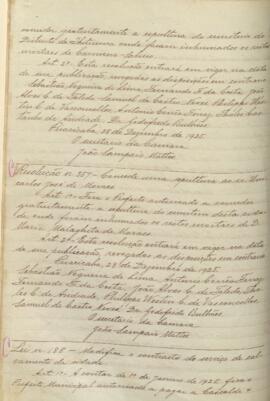 conceder gratuitamente a sepultura do cemiterio do
Districto de onde foram inhumados os restos
mortaes de
Art. 2º Esta resolução entrará em vigor na data
de sua publicação, revogadas as disposições em contrario
Sebastião Nogueira de Lima, Fernando F. da Costa, João
Alves C. de Toledo, Samuel de Castro Neves, Philippe
C. de Vasconcellos, Antonio Corrêa Ferraz,
de Andrade. Dr. Godofredo Bulhões.
Piracicaba, 28 de Dezembro de 1925.
O secretario da Camara
João Sampaio Mattos
Resolução n. 257 - Concede uma sepultura ao sr.
carlos José de Moraes
Art. 1º Fica o Prefeito autorisado a conceder
gratuitamente a sepultura do cemiterio desta cidade
onde foram inhumados os restos mortaes de D.
Maria de Moraes.
Art. 2º Esta resolução entrará em vigor na data
de sua publicação, revogadas as disposições em contrario
Piracicaba, 28 de Dezembro de 1925.
Sebastião Nogueira de Lima, Antonio Corrêa Ferraz,
Fernando F. da Costa, João Alves C. de Toledo,
C. de Andrade, C. de Vasconcellos,
Samuel de Castro Neves. Dr. Godofredo Bulhões.
O secretario da Camara
João Sampaio Mattos
Lei n. 188 - Modifica o contracto do serviço de
da cidade
Art. 1º A contar de 1º de Janeiro de 1926, fica o
Prefeito Municipal autorisado a pagar a